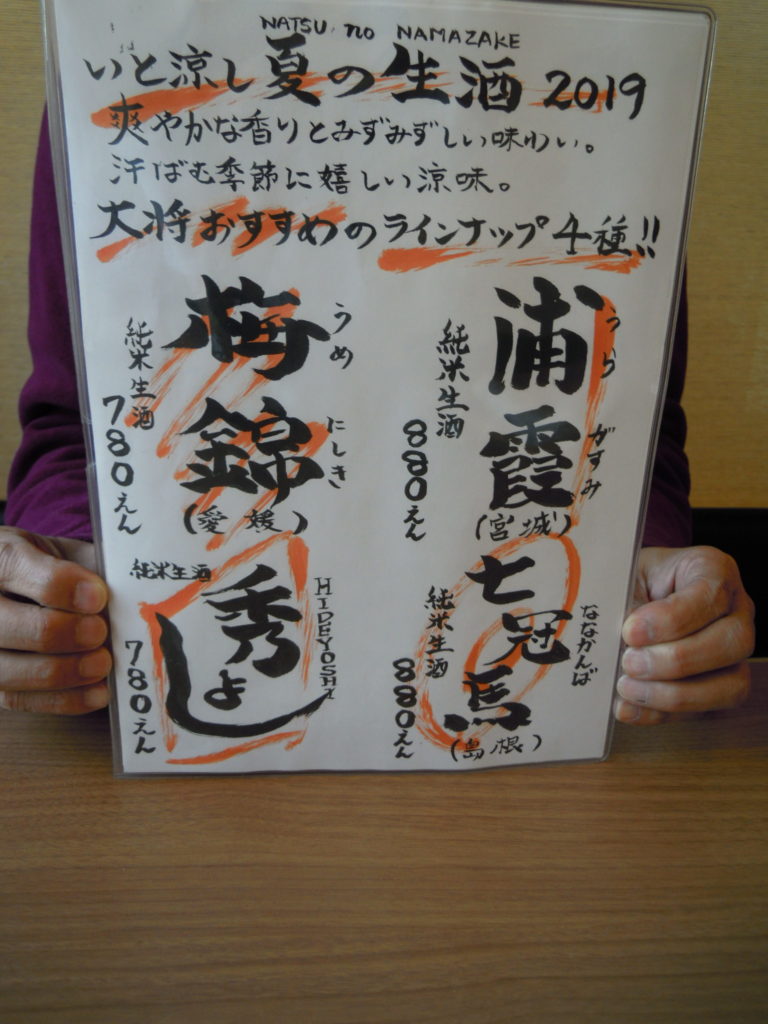 NATSU no NAMAZAKE
いと涼し夏の生酒 2019
爽やかな香りとみずみずしい味わい。
汗ばむ季節に嬉しい涼味。
大将おすすめのラインナップ4種!!
浦霞
うらがすみ
(宮城)
純米生酒
880えん
梅錦
うめにしき
(愛媛)
純米生酒
780えん
七冠馬
ななかんば
(島根)
純米生酒
880えん
秀よし
HIDEYOSHI
純米生酒
780えん